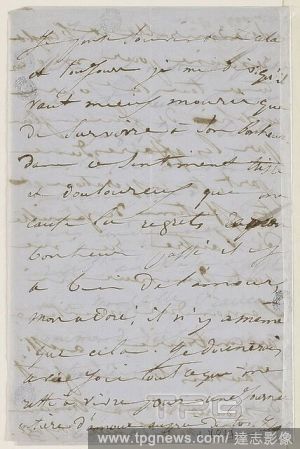 Je pense souvent à cela
et toujours je me dis qu'il
vaut mieux mourir que
de survivre à son bonheur
dans ce sentiment triste
et douloureux que me
cause le regrets
bonheur passé il y
a bien de l'amour,
mon adoré, il n'y a même
que cela. Je donnerais
avec joie tout ce que me
reste à vivre pour une journée
d'amour
TPG
www.tpgnews.com/達志影像